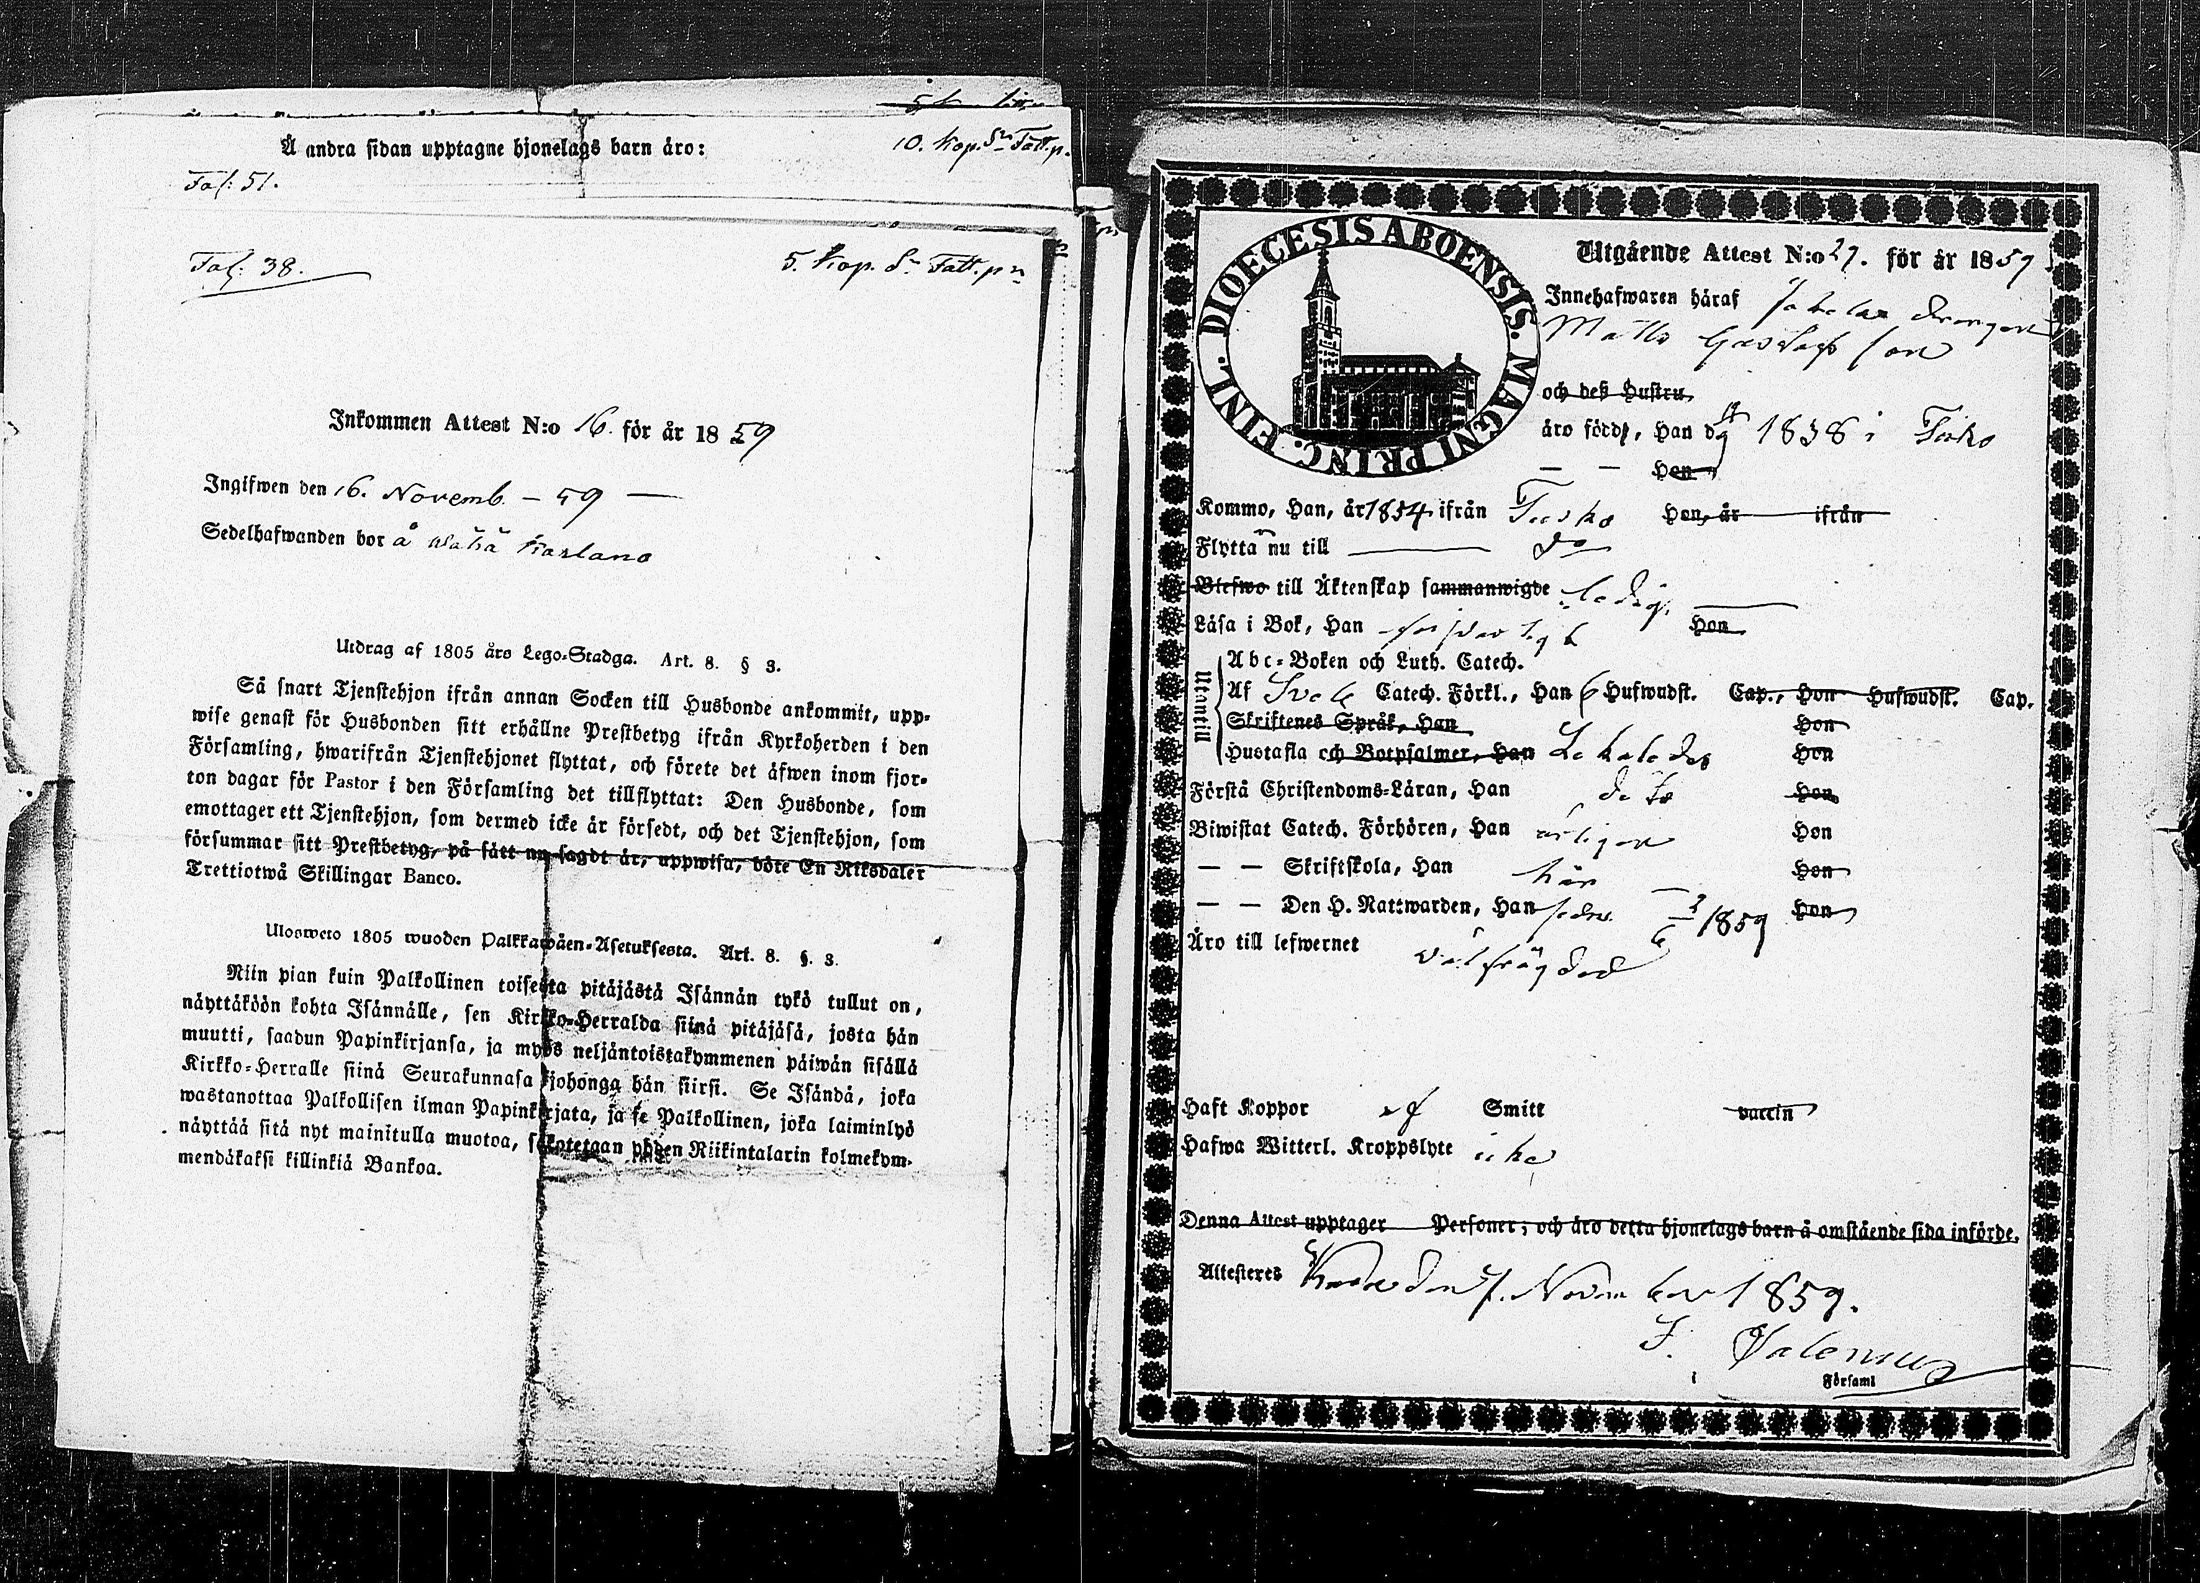 Å andra sidan upptagne hjonelags barn äro:
10. Kop. Sr Fatt.p.
Fol: 51.
Fol: 38.
5. Kop. Sr Fatt.p
Inkommen Attest N:o 16. för år 1859
Ingifwen den 16. Novemb. – 59 –
Sedelhafwanden bor å
Utdrag af 1805 års Lego-Stadga. Art. 8. § 3.
Så snart Tjenstehjon ifrån annan Socken till Husbonde ankommit, upp-
wise genast för Husbonden sitt erhållne Prestbetyg ifrån Kyrkoherden i den
Församling, hwarifrån Tjenstehjonet flyttat, och förete det äfwen inom fjor-
ton dagar för Pastor i den Församling det tillflyttat: Den Husbonde, som
emottager ett Tjenstehjon, som dermed icke är försedt, och det Tjenstehjon, som
försummar sitt Prestbetyg, på sätt nu sagdt är, uppwisa, böte En Riksdaler
Trettiotwå Skillingar Banco.
Ulosweto 1805 wuoden Palkkawäen-Asetuksesta. Art. 8. §. 3.
Niin pian kuin Palkollinen toisesta pitäjästä Isännän tykö tullut on,
näyttäköön kohta Isännälle, sen Kirkko-Herralda siinä pitäjäsä, josta hän
muutti, saadun Papinkirjansa, ja myös neljäntoistakymmenen päiwän sisällä
Kirkko-Herralle siinä Seurakunnasa johonga hän siirsi. Se Isändä, joka
wastanottaa Palkollisen ilman Papinkirjata, ja se Palkollinen, joka laiminlyö
näyttää sitä nyt mainitulla muotoa, sakotetaan yhden Riikintalarin kolmekym-
mendäkaksi killinkiä Bankoa.
DIOECESIS ABOENSIS. MAGNI PRINC. FINL.
Utgående Attest N:o 27. för år 1859
Innehafwaren häraf drengen
Matts Gustafs son
och deß Hustru
äro född, Han d 1838 i Tusko
— — Hon
Kommo, Han, år 1854 ifrån Tusko Hon, år ifrån
Flytta nu till — do
Blefwo till Äktenskap sammanwigde ledig
Läsa i Bok, Han försvarligt Hon
Utantill
Abc-Boken och Luth. Catech.
Af Svebe Catech. Förkl., Han 6 Hufwudst. Cap., Hon Hufwudst. Cap.
Skriftenes Språk, Han Hon
Hustafla och Botpsalmer, Han Hon
Förstå Christendoms-Läran, Han Hon
Biwistat Catech. Förhören, Han årligen Hon
— — Skriftskola, Han här Hon
— — Den H. Nattwarden, Han sedn. 1859 Hon
Äro till lefwernet välfrägdad
Haft Koppor ej Smitt vaccin
Hafwa Witterl. Kroppslyte icke
Denna Attest upptager Personer; och äro detta hjonelags barn å omstående sida införde.
Attesteres den November 1859.
Församl